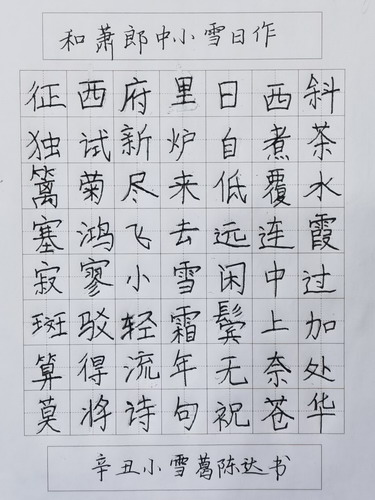 和萧郎中小雪日作
征西府里日西斜
独试新炉自煮茶
篱菊尽来低覆水
塞鸿飞去远连霞
寂寥小雪闲中过
斑驳轻霜鬓上加
算得流年无奈处
莫将诗句祝苍华
辛丑小雪陈达书